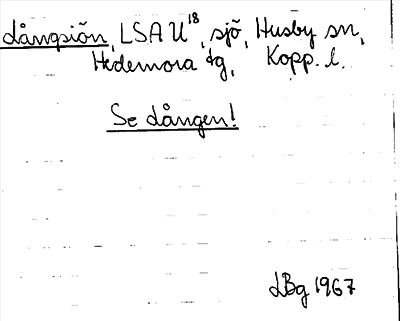 Långsjön, LSA U18, sjö, Husby sn,
Hedemora tg, Kopp. l.
Se Lången!
LBg 1967